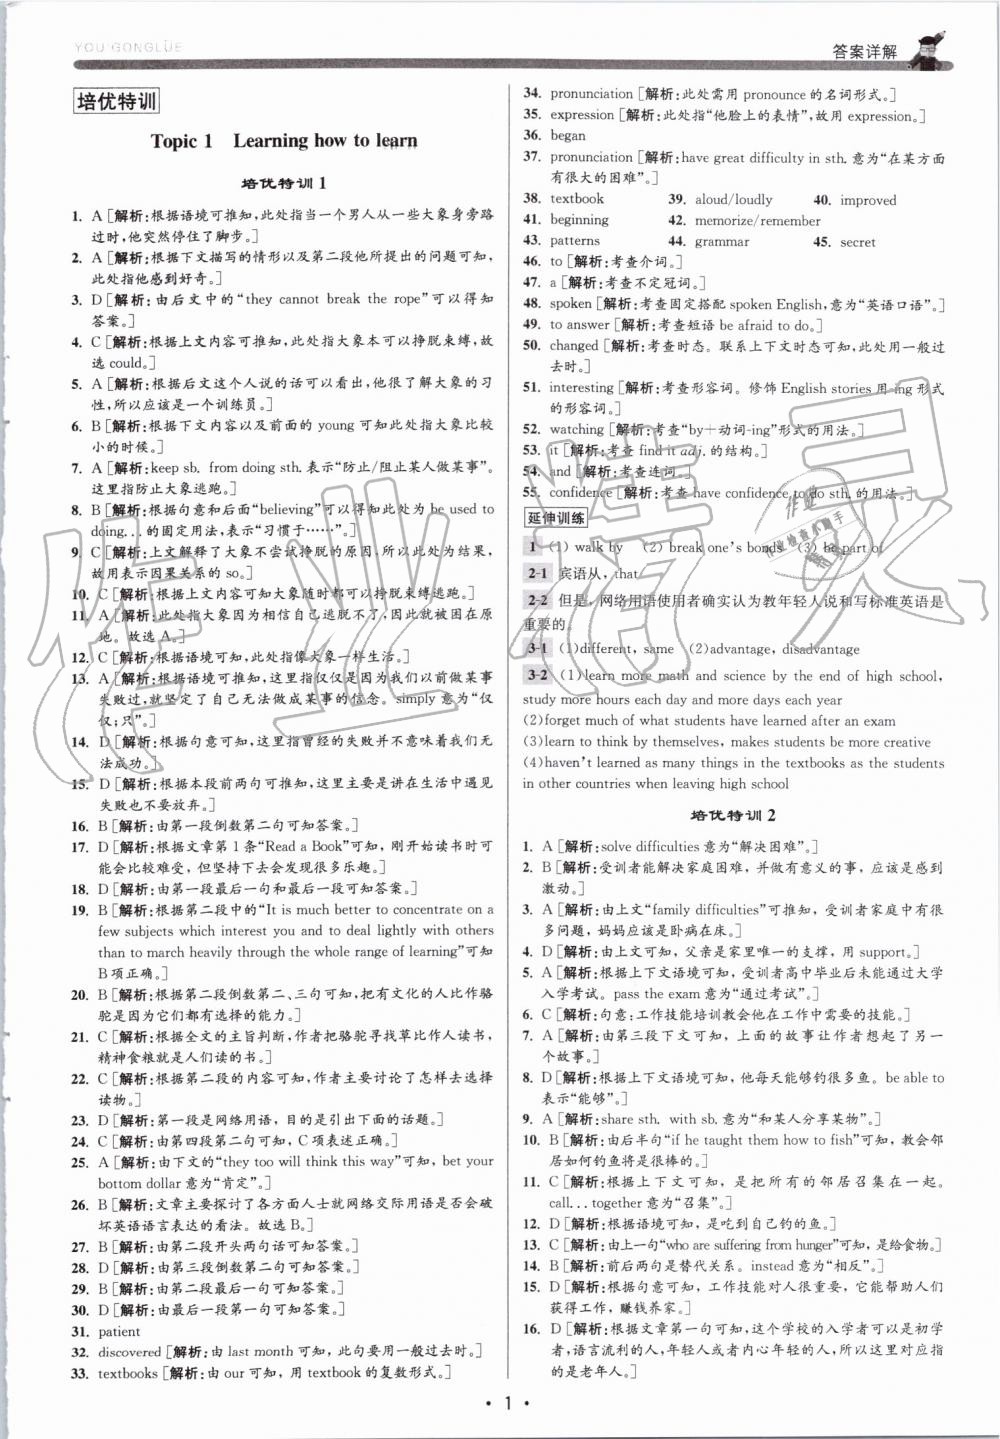 YOU GONGLÜE
答案详解
培优特训
Topic 1　Learning how to learn
培优特训 1
1. A [解析:根据语境可推知,此处指当一个男人从一些大象身旁路
过时,他突然停住了脚步。]
2. A [解析:根据下文描写的情形以及第二段他所提出的问题可知,
此处指他感到好奇。]
3. D [解析:由后文中的“they cannot break the rope”可以得知
答案。]
4. C [解析:根据上文内容可推知,此处指大象本可以挣脱束缚,故
选 could。]
5. A [解析:根据后文这个人说的话可以看出,他很了解大象的习
性,所以应该是一个训练员。]
6. B [解析:根据下文内容以及前面的 young 可知此处指大象比较
小的时候。]
7. A [解析:keep sb. from doing sth. 表示“防止/阻止某人做某事”。
这里指防止大象逃跑。]
8. B [解析:根据句意和后面“believing”可以得知此处为 be used to
doing... 的固定用法,表示“习惯于……”。]
9. C [解析:上文解释了大象不尝试挣脱的原因,所以此处为结果,
故用表示因果关系的 so。]
10. C [解析:根据上文内容可知大象随时都可以挣脱束缚逃跑。]
11. A [解析:此处指大象因为相信自己逃脱不了,才会被困在原
地。故选 A。]
12. C [解析:根据语境可知,此处指像大象一样生活。]
13. A [解析:根据语境可知,这里指仅仅是因为我们以前做某事
失败过,就坚定了自己无法做成某事的信念。simply 意为“仅
仅;只”。]
14. D [解析:根据句意可知,这里指曾经的失败并不意味着我们无
法成功。]
15. D [解析:根据本段前两句可推知,这里主要是讲在生活中遇见
失败也不要放弃。]
16. B [解析:由第一段倒数第二句可知答案。]
17. D [解析:根据文章第 1 条“Read a Book”可知,刚开始读书时可
能会比较难受,但坚持下去会发现很多乐趣。]
18. D [解析:由第一段最后一句和最后一段可知答案。]
19. B [解析:根据第二段中的“It is much better to concentrate on a
few subjects which interest you and to deal lightly with others
than to march heavily through the whole range of learning”可知
B 项正确。]
20. B [解析:根据第二段倒数第二、三句可知,把有文化的人比作骆
驼是因为它们都有选择的能力。]
21. C [解析:根据全文的主旨判断,作者把骆驼寻找草比作人读书,
精神食粮就是人们读的书。]
22. C [解析:根据第二段的内容可知,作者主要讨论了怎样去选择
读物。]
23. D [解析:第一段是网络用语,目的是引出下面的话题。]
24. C [解析:由第四段第二句可知,C 项表述正确。]
25. A [解析:由下文的“they too will think this way”可知,bet your
bottom dollar 意为“肯定”。]
26. B [解析:文章主要探讨了各方面人士就网络交际用语是否会破
坏英语语言表达的看法。故选 B。]
27. B [解析:由第二段开头两句话可知答案。]
28. D [解析:由第三段倒数第二句可知答案。]
29. B [解析:由第二段最后一句可知答案。]
30. D [解析:由最后一段第一句可知答案。]
31. patient
32. discovered [解析:由 last month 可知,此句要用一般过去时。]
33. textbooks [解析:由 our 可知,用 textbook 的复数形式。]
34. pronunciation [解析:此处需用 pronounce 的名词形式。]
35. expression [解析:此处指“他脸上的表情”,故用 expression。]
36. began
37. pronunciation [解析:have great difficulty in sth. 意为“在某方面
有很大的困难”。]
38. textbook　39. aloud/loudly　40. improved
41. beginning　42. memorize/remember
43. patterns　44. grammar　45. secret
46. to [解析:考查介词。]
47. a [解析:考查不定冠词。]
48. spoken [解析:考查固定搭配 spoken English,意为“英语口语”。]
49. to answer [解析:考查短语 be afraid to do。]
50. changed [解析:考查时态。联系上下文时态可知,此处用一般过
去时。]
51. interesting [解析:考查形容词。修饰 English stories 用-ing 形式
的形容词。]
52. watching [解析:考查“by+动词-ing”形式的用法。]
53. it [解析:考查 find it adj. 的结构。]
54. and [解析:考查连词。]
55. confidence [解析:考查 have confidence to do sth. 的用法。]
延伸训练
1 (1) walk by　(2) break one's bonds　(3) be part of
2-1 宾语从, that
2-2 但是,网络用语使用者确实认为教年轻人说和写标准英语是
重要的。
3-1 (1)different, same　(2)advantage, disadvantage
3-2 (1)learn more math and science by the end of high school,
study more hours each day and more days each year
(2)forget much of what students have learned after an exam
(3)learn to think by themselves, makes students be more creative
(4)haven't learned as many things in the textbooks as the students
in other countries when leaving high school
培优特训 2
1. A [解析:solve difficulties 意为“解决困难”。]
2. B [解析:受训者能解决家庭困难,并做有意义的事,应该是感到
激动。]
3. A [解析:由上文“family difficulties”可推知,受训者家庭中有很
多问题,妈妈应该是卧病在床。]
4. D [解析:由上文可知,父亲是家里唯一的支撑,用 support。]
5. A [解析:根据上下文语境可知,受训者高中毕业后未能通过大学
入学考试。pass the exam 意为“通过考试”。]
6. C [解析:句意:工作技能培训教会他在工作中需要的技能。]
7. A [解析:由第三段下文可知,上面的故事让作者想起了另一
个故事。]
8. D [解析:根据上下文语境可知,他每天能够钓很多鱼。be able to
表示“能够”。]
9. A [解析:share sth. with sb. 意为“和某人分享某物”。]
10. B [解析:由后半句“if he taught them how to fish”可知,教会邻
居如何钓鱼将是很棒的。]
11. C [解析:根据上下文可知,是把所有的邻居召集在一起。
call... together 意为“召集”。]
12. D [解析:根据语境可知,是吃到自己钓的鱼。]
13. C [解析:由上一句“who are suffering from hunger”可知,是给食物。]
14. B [解析:前后两句是替代关系。instead 意为“相反”。]
15. D [解析:根据句意可知,工作技能对人很重要,它能帮助人们
获得工作,赚钱养家。]
16. D [解析:根据文章第一句可知,这个学校的入学者可以是身
患,语言流利的人,年轻人或者内心年轻的人,所以这里对应指
的是老年人。]
• 1 •